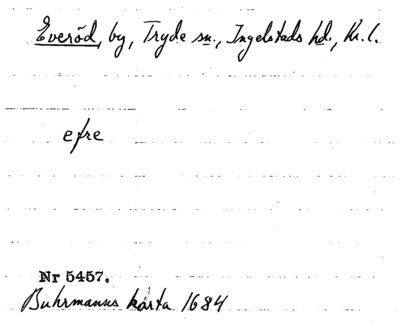 Everöd, by, Tryde sn., Ingelstads hd., Kr. l.
efre
Nr 5457.
Buhrmanns karta 1684